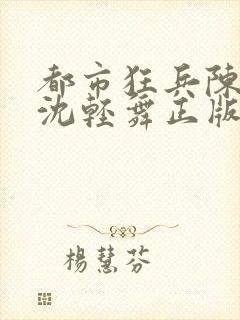 都市狂兵陳
沈輕舞正版
楊慧芬